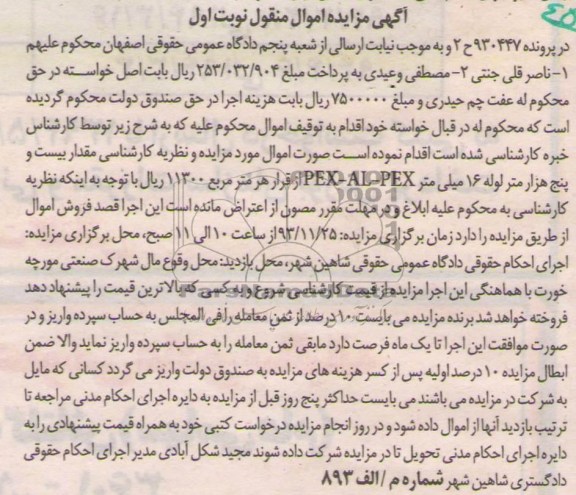 آگهی مزایده اموال منقول نوبت اول
در پرونده ۹۳۰۴۴۷ ح ۲ و به موجب نیابت ارسالی از شعبه پنجم دادگاه عمومی حقوقی اصفهان محکوم علیهم
۱- ناصر قلی جنتی ۲- مصطفی وعیدی به پرداخت مبلغ ۲۵۳/۰۳۲/۹۰۴ ریال بابت اصل خواسته در حق
محکوم له عفت چم حیدری و مبلغ ۷۵۰۰۰۰۰ ریال بابت هزینه اجرا در حق صندوق دولت محکوم گردیده
است که محکوم له در قبال خواسته خود اقدام به توقیف اموال محکوم علیه که به شرح زیر توسط کارشناس
خبره کارشناسی شده است اقدام نموده است صورت اموال مورد مزایده و نظریه کارشناسی مقدار بیست و
پنج هزار متر لوله ۱۶ میلی متر PEX-AL-PEX از قرار هر متر مربع ۱۱۳۰۰ ریال با توجه به اینکه نظریه
کارشناسی به محکوم علیه ابلاغ و در مهلت مقرر مصون از اعتراض مانده است این اجرا قصد فروش اموال
از طریق مزایده را دارد زمان برگزاری مزایده: ۹۳/۱۱/۲۵ از ساعت ۱۰ الی ۱۱ صبح، محل برگزاری مزایده:
اجرای احکام حقوقی دادگاه عمومی حقوقی شاهین شهر، محل بازدید: محل وقوع مال شهرک صنعتی مورچه
خورت با هماهنگی این اجرا مزایده از قیمت کارشناسی شروع و به کسی که بالاترین قیمت را پیشنهاد دهد
فروخته خواهد شد برنده مزایده می بایست ۱۰ درصد از ثمن معامله را فی المجلس به حساب سپرده واریز و در
صورت موافقت این اجرا تا یک ماه فرصت دارد مابقی ثمن معامله را به حساب سپرده واریز نماید والا ضمن
ابطال مزایده ۱۰ درصد اولیه پس از کسر هزینه های مزایده به صندوق دولت واریز می گردد کسانی که مایل
به شرکت در مزایده می باشند می بایست حداکثر پنج روز قبل از مزایده به دایره اجرای احکام مدنی مراجعه تا
ترتیب بازدید آنها از اموال داده شود و در روز انجام مزایده درخواست کتبی خود به همراه قیمت پیشنهادی را به
دایره اجرای احکام مدنی تحویل تا در مزایده شرکت داده شوند مجید شکل آبادی مدیر اجرای احکام حقوقی
دادگستری شاهین شهر شماره م / الف ۸۹۳